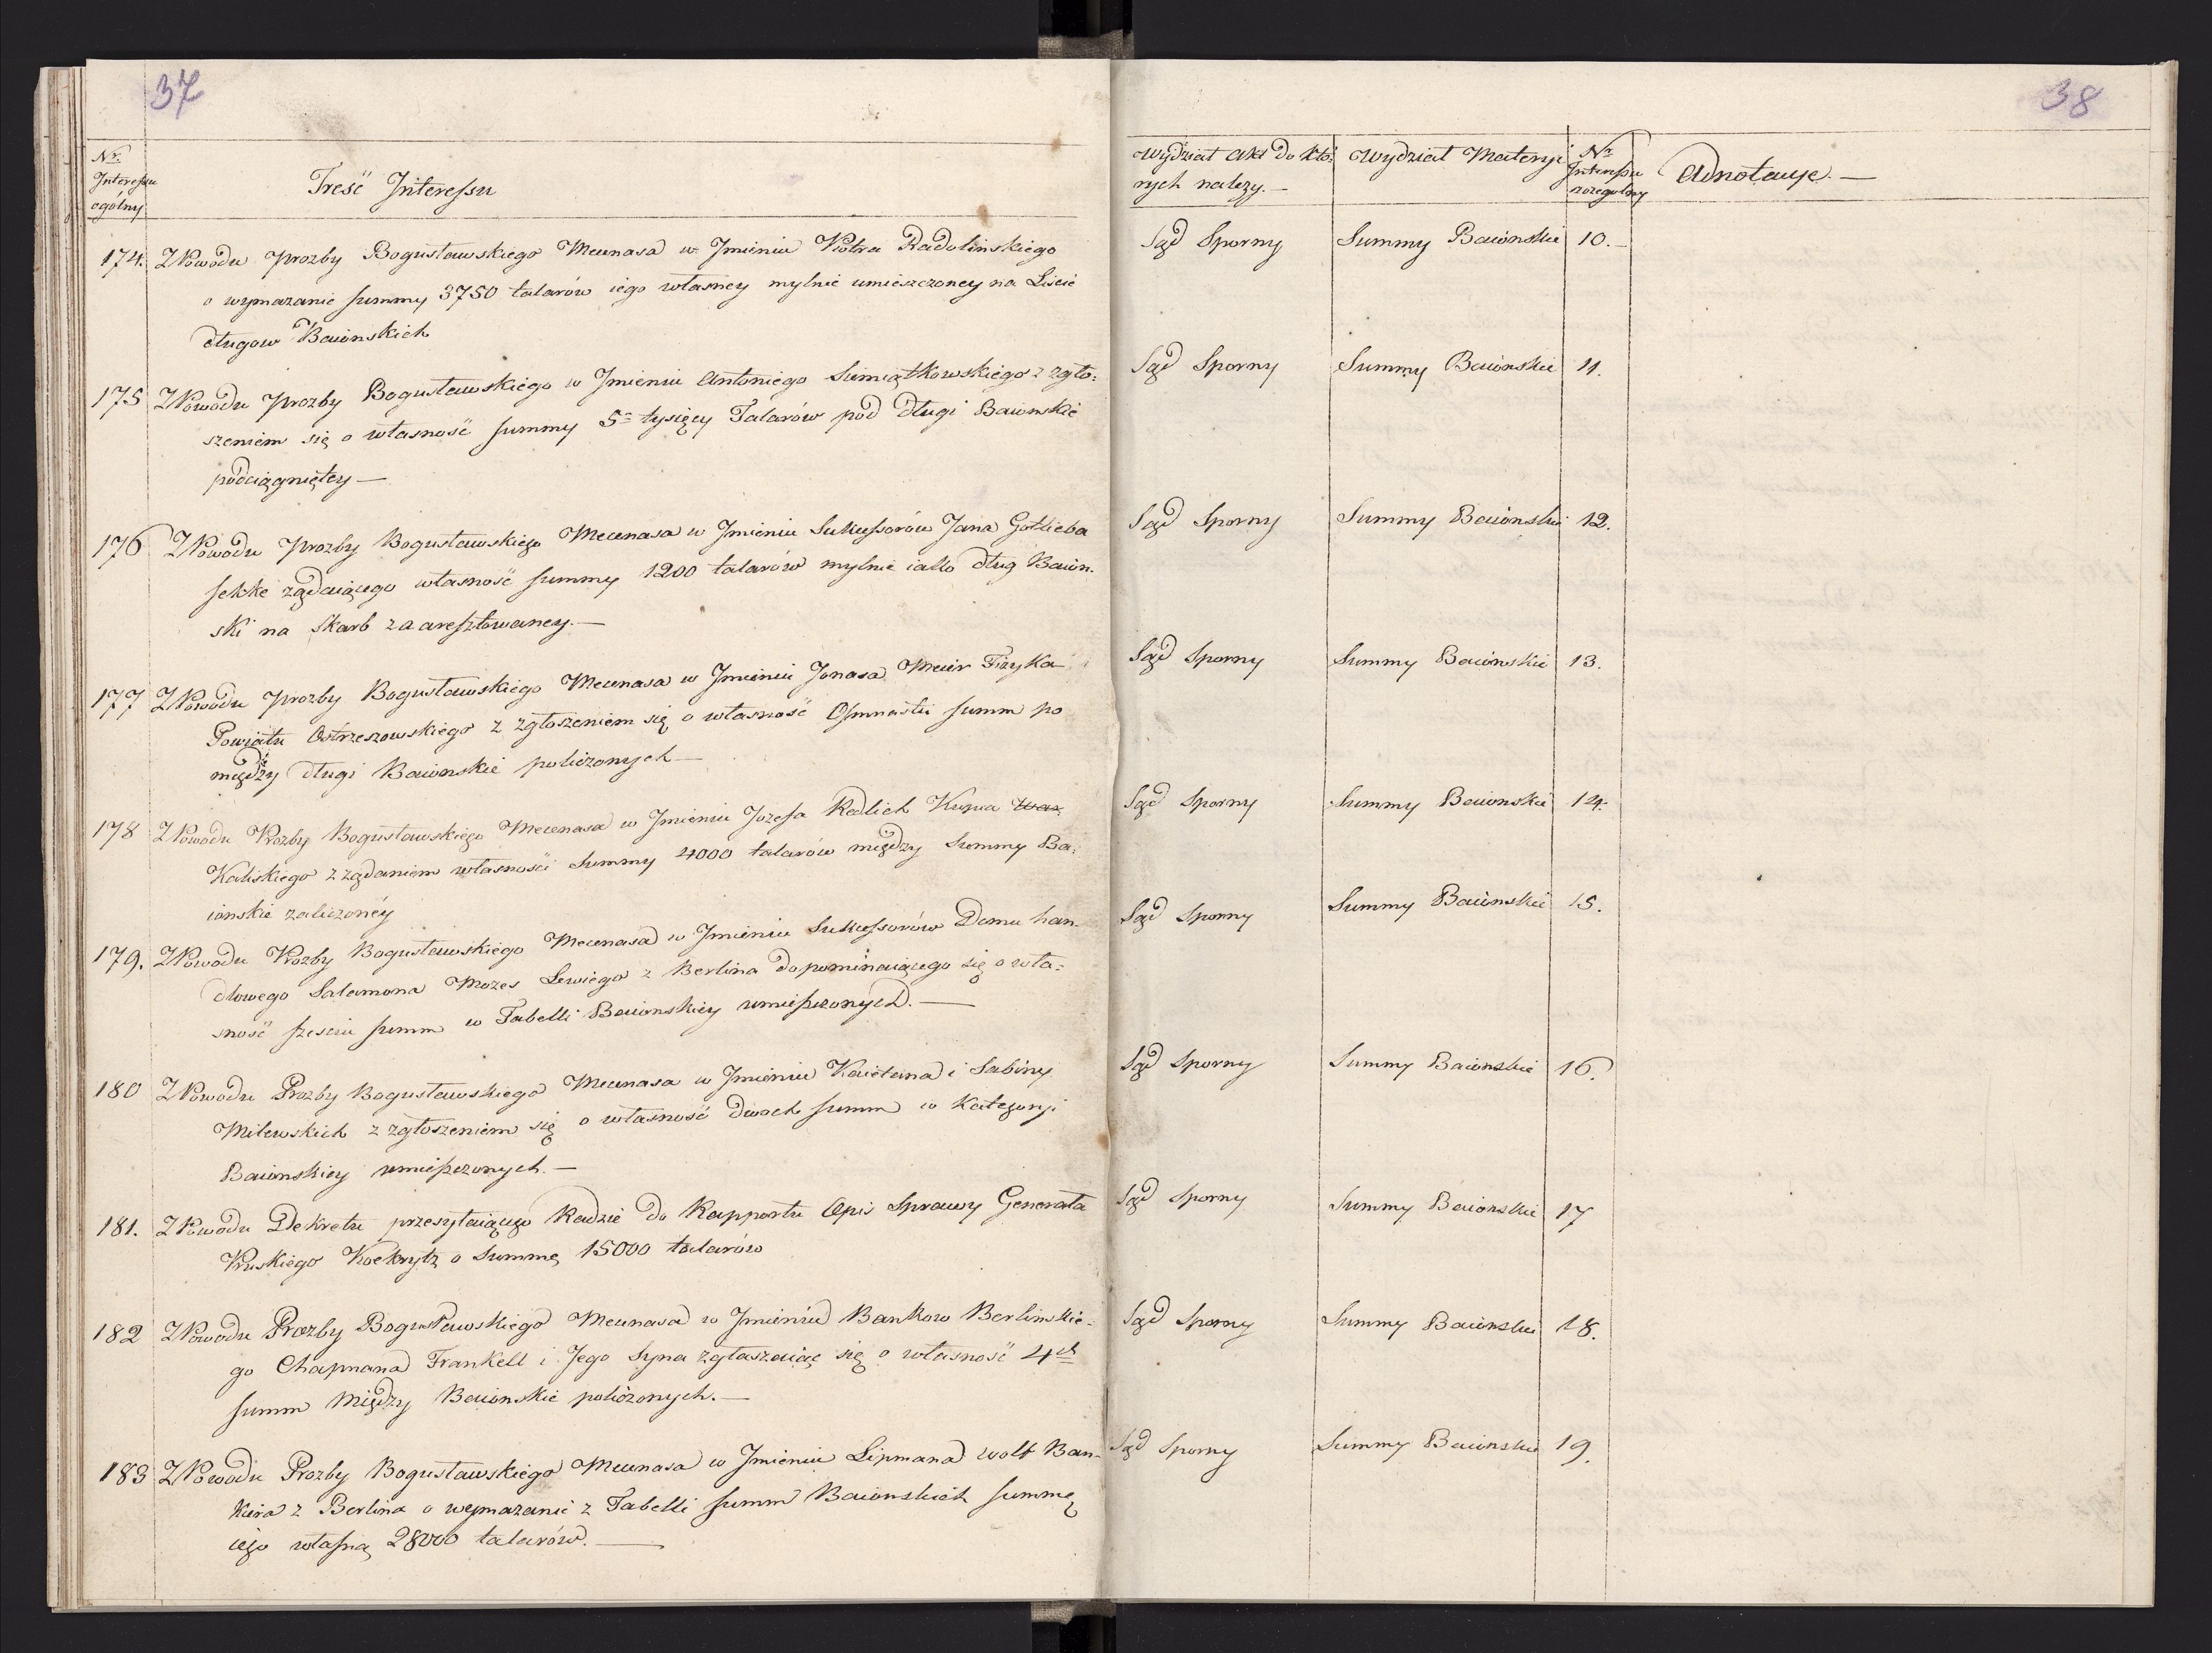 37
Nr.
Interessu
ogólny
Treść Interessu
174. Z Powodu prozby Bogusławskiego Mecenasa w Jmieniu Piotra Radolinskiego
o wymazanie summy 3750 talarów iego własney mylnie umieszczoney na Liscie
długow Baionskich
175 Z Powodu prozby Bogusławskiego w Jmieniu Antoniego Simiątkowskiego z zgło:
szeniem się o własność summy 5 tysięcy Talarów pod długi Baionskie
podciągniętey —
176 Z Powodu prozby Bogusławskiego Mecenasa w Jmieniu Sukcessorów Jana Gottlieba
sekke ządaiącego własność summy 1200 talarów mylnie iako dług Baion-
ski na Skarb zaaresztowaney. —
177 Z Powodu prozby Bogusławskiego Mecenasa w Jmieniu Jonasa Meier Fizyka
Powiatu Ostrzeszowskiego z zgłoszeniem się o własność Osmnastu summ po
między długi Baionskie policzonych —
178 Z Powodu Prozby Bogusławskiego Mecenasa w Jmieniu Jozefa Redlich Kupca War
Kaliskiego z ządaniem własności Summy 4000 talarow między Summy Ba:
ionskie zaliczoney
179. Z Powodu Prozby Bogusławskiego Mecenasa w Jmieniu Sukcessorów Domu han-
dlowego Salamona Mozes Lewiego z Berlina dopominaiącego się o wła:
sność szesciu summ w Tabelli Baionskiey umieszczonych. —
180 Z Powodu Prozby Bogusławskiego Mecenasa w Jmieniu Kaietana i Sabiny
Milewskich z zgłoszeniem się o własność dwoch summ w Kategoryi
Baionskiey umieszczonych. —
181. Z Powodu Dekretu przesyłaiącego Radzie do Rapportu Opis Sprawy Generała
Pruskiego Koekrytz o Summę 15000 talarów
182 Z Powodu Prozby Bogusławskiego Mecenasa w Jmieniu Bankow Berlinskie-
go Chapmana Frankell i Jego Syna zgłaszaiąc się o własność 4ch
summ Między Baionskie policzonych. —
183 Z Powodu Prozby Bogusławskiego Mecenasa w Jmieniu Lipmana Wolf Ban-
kiera z Berlina o wymazanie z Tabelli summ Baionskich summę
iego własną 28000 talarów. —
38
Wydział Akt do któ:
rych nalezy. —
Wydział Materyi
Nr
Interessu
szczegolny
Adnotacye. —
Sąd Sporny Summy Baionskie 10. —
Sąd Sporny Summy Baionskie 11.
Sąd Sporny Summy Baionskie 12.
Sąd Sporny Summy Baionskie 13.
Sąd Sporny Summy Baionskie 14.
Sąd Sporny Summy Baionskie 15.
Sąd Sporny Summy Baionskie 16.
Sąd Sporny Summy Baionskie 17
Sąd Sporny Summy Baionskie 18.
Sąd Sporny Summy Baionskie 19.